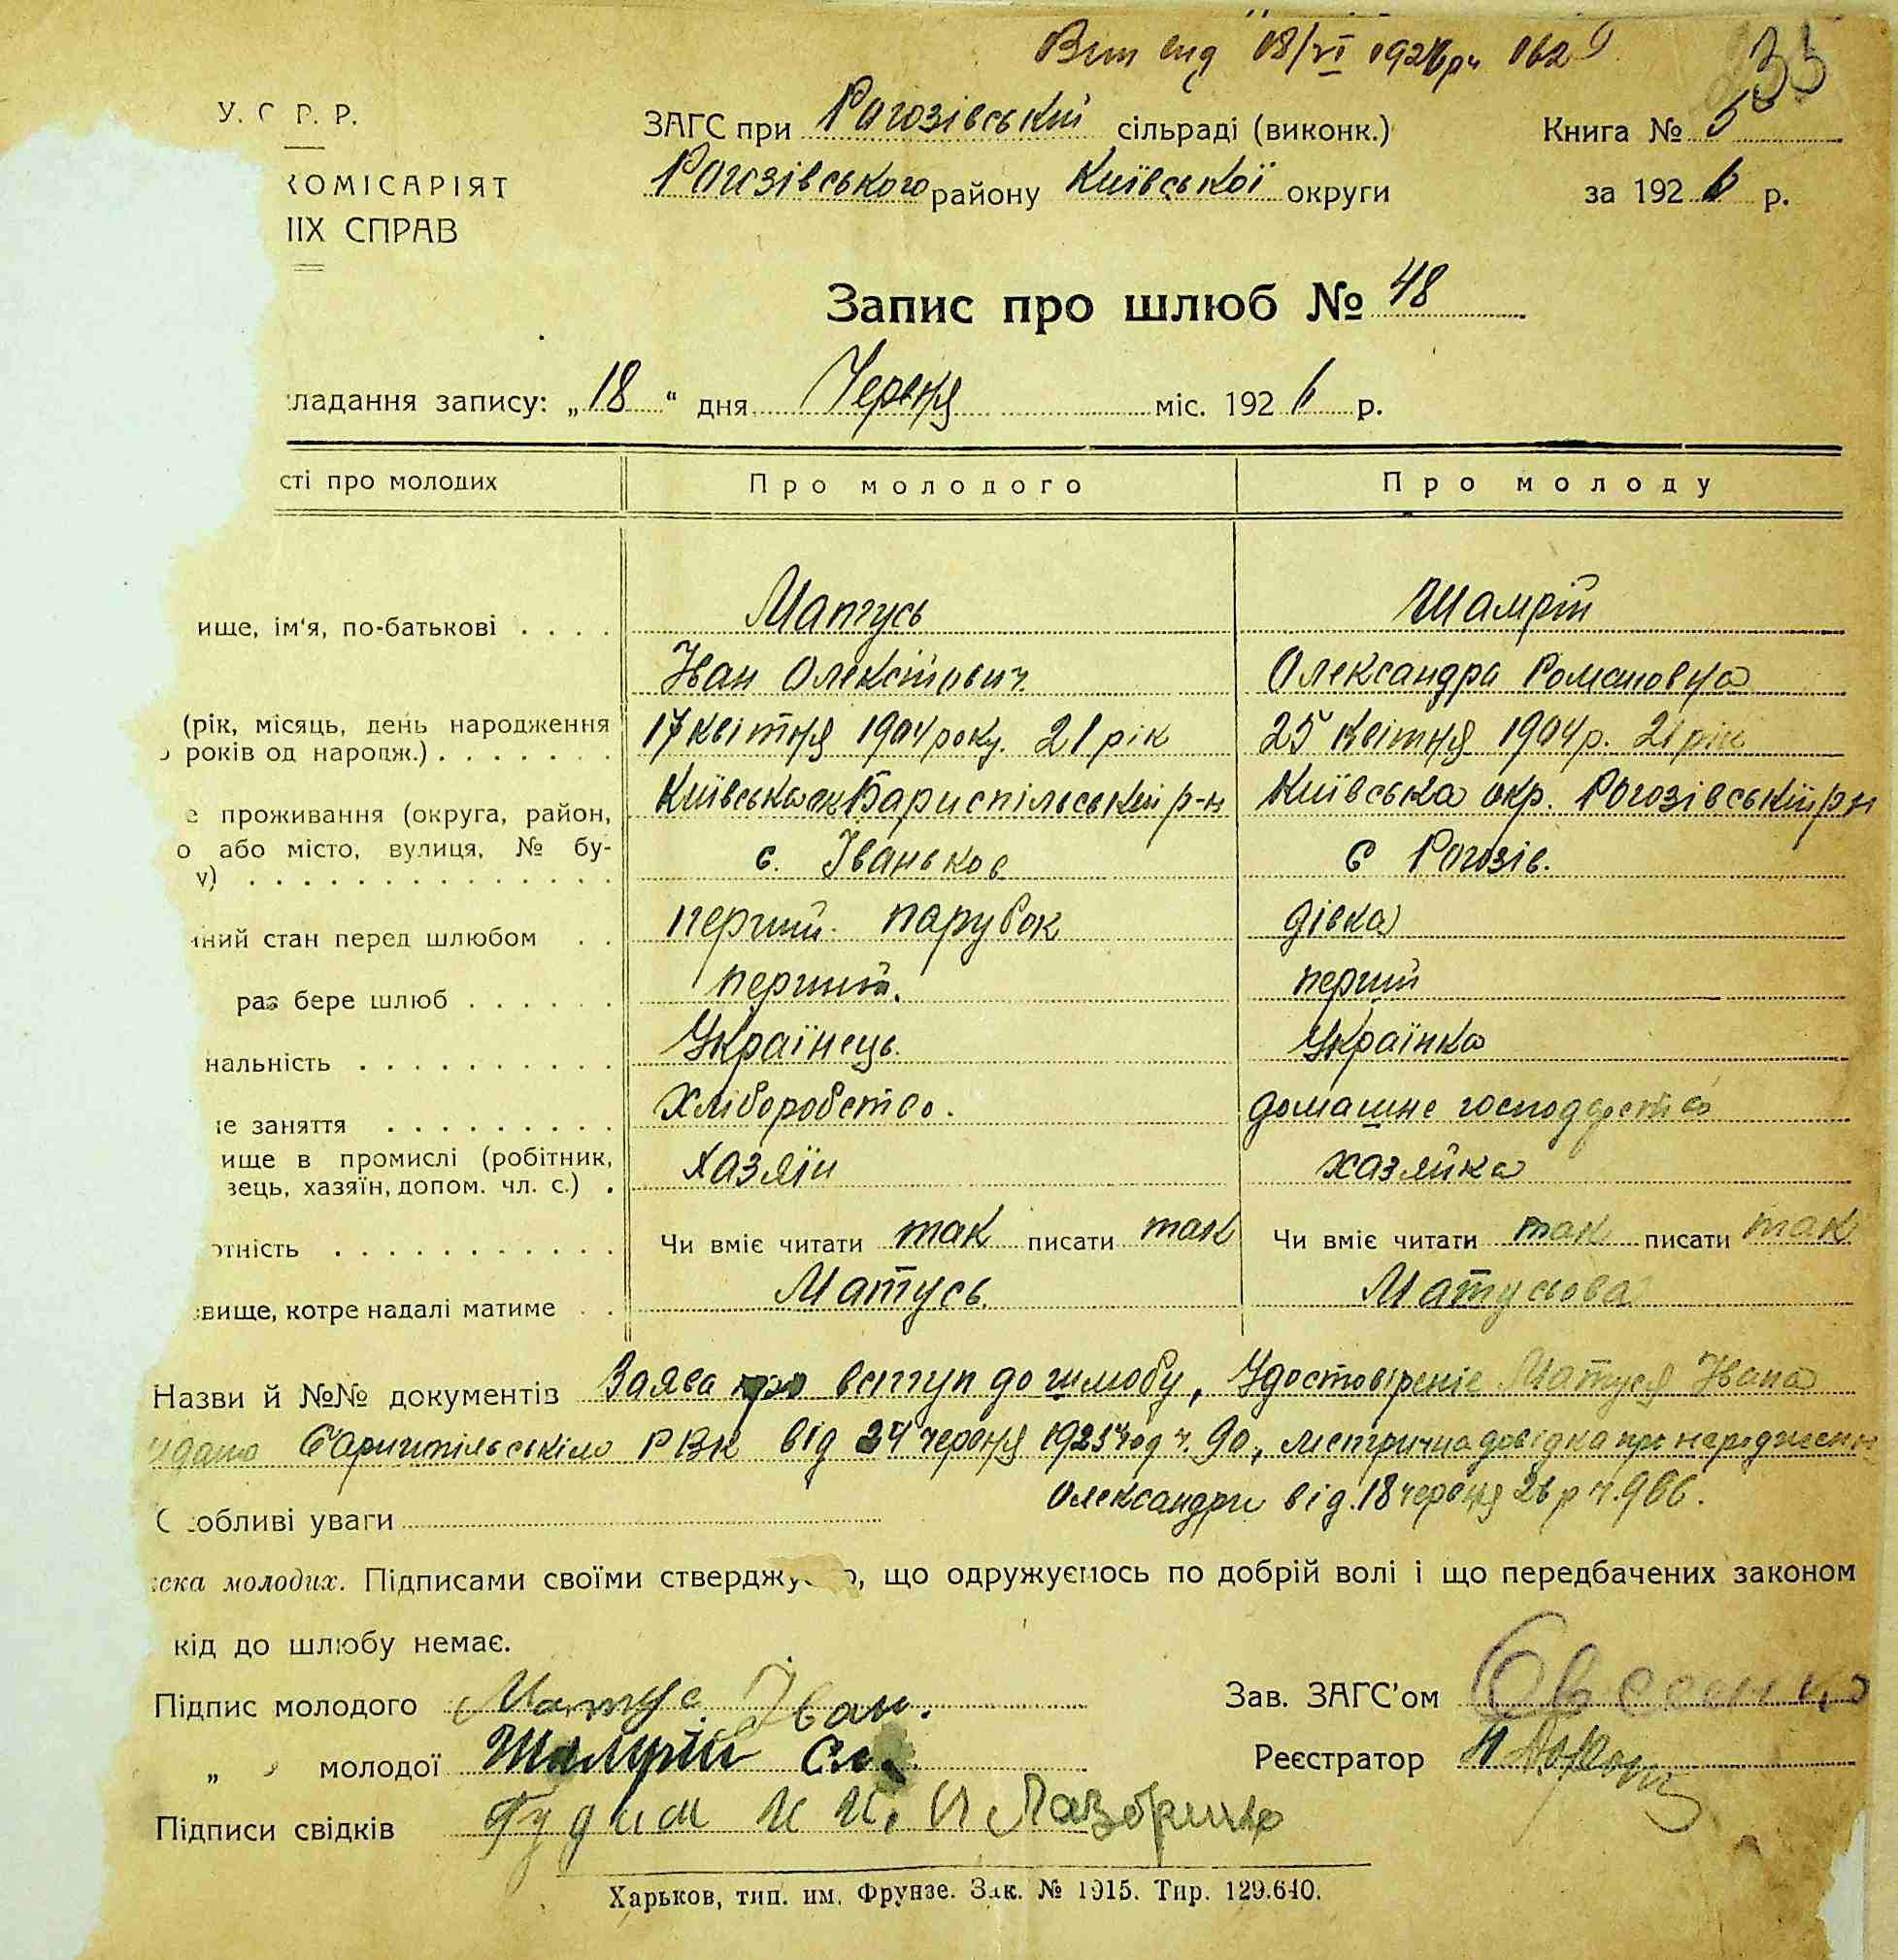 Вип вид 18/VI 1926 р.
33
У. С. Р. Р.
ЗАГС при Рогозівській сільраді (виконк.)
Книга № 5
КОМІСАРІЯТ
Рогозівського району Київської округи
за 1926 р.
ІХ СПРАВ
Запис про шлюб № 48
ладання запису: „18“ дня Червня міс. 1926 р.
сті про молодих
Про молодого
Про молоду
ище, ім'я, по-батькові
Матусь
Шамрій
Іван Олексійович
Олександра Романовна
(рік, місяць, день народження
років од народж.)
17 квітня 1904 року. 21 рік
25 Квітня 1904 р. 21 рік
е проживання (округа, район,
о або місто, вулиця, № бу-
у)
Київська ок Бариспільський р-н
Київська окр. Рогозівський рн
с. Іваньков
с Рогозів.
ний стан перед шлюбом
перший. парубок
дівка
раз бере шлюб
перший.
перший
нальність
Українець.
Українка
е заняття
Хліборобство.
домашнє господарство
ище в промислі (робітник,
вець, хазяїн, допом. чл. с.)
Хазяїн
хазяйка
отність
Чи вміє читати так писати так
Чи вміє читати так писати так
вище, котре надалі матиме
Матусь
Матусьова
Назви й №№ документів Заява про вступ до шлюбу, Удостовіреніе Матуся Івана
Бариспільскім РВК від 24 червня 1925 год ч. 90, метрична довідка про народження
Олександри від 18 червня 26 р ч. 966.
Особливі уваги
ска молодих. Підписами своїми стверджуємо, що одружуємось по добрій волі і що передбачених законом
кід до шлюбу немає.
Підпис молодого Матус Іван.
Зав. ЗАГС'ом
„ молодої Шамрій Ол.
Реєстратор
Підписи свідків Гудим И И. И Лазоренко
Харьков, тип. им. Фрунзе. Зак. № 1915. Тир. 129.640.